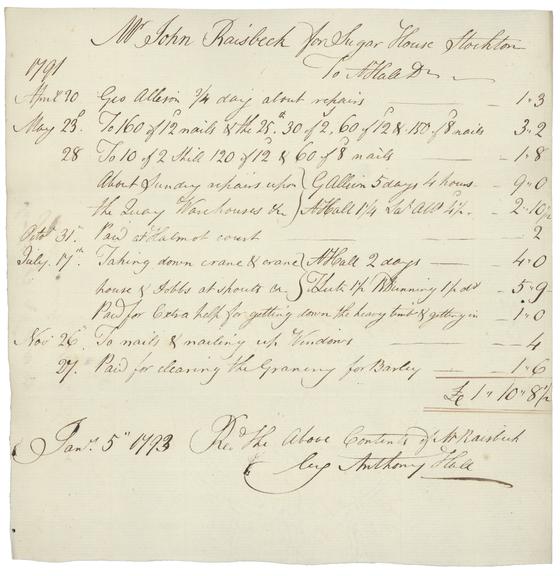 Mr John Raisbeck for Sugar House Stockton
1791 To AHall Dr
April 20 Geo Allison 3/4 day about repairs 1 " 3
May 23d To 160 of 12 nails & the 25th 30 of 2, 60 of 12 & 150 of 8 nails 3 " 2
28 To 10 of 2 Still 120 of 12 & 60 of 8 nails 1 " 8
About Sundry repairs upon } GAllison 5 days 4 hours 9 " 0
the Quay Warehouses &c } AHall 1 1/4 2 " 10 1/2
Octr 31st Paid at Halmot court 2
July 17th Taking down crane & crane } AHall 2 days 4 " 0
house & Jobbs at spouts &c } 5 " 9
Paid for Extra help for getting down the heavy & getting in 1 " 0
Nov 26th To nails & nailing up Windows 4
27 Paid for clearing the Granery for Barley 1 " 6
£ 1 " 10 " 8 1/2
Jany 5th 1793 Recd the Above Contents of Mr Raisbeck
Anthony Hall